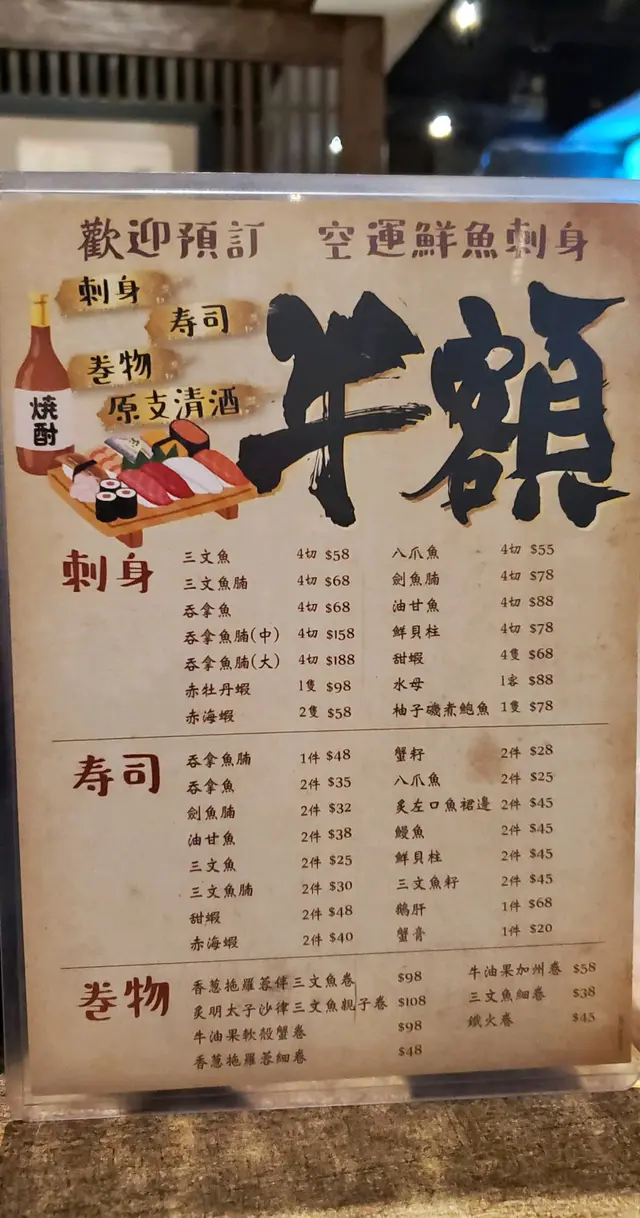 歡迎預訂 空運鮮魚刺身
刺身
寿司
巻物
原支清酒
焼酎
牛額
刺身
三文魚 4切 $58
三文魚腩 4切 $68
吞拿魚 4切 $68
吞拿魚腩(中) 4切 $158
吞拿魚腩(大) 4切 $188
赤牡丹蝦 1隻 $98
赤海蝦 2隻 $58
八爪魚 4切 $55
劍魚腩 4切 $78
油甘魚 4切 $88
鮮貝柱 4切 $78
甜蝦 4隻 $68
水母 1客 $88
柚子磯煮鮑魚 1隻 $78
寿司
吞拿魚腩 1件 $48
吞拿魚 2件 $35
劍魚腩 2件 $32
油甘魚 2件 $38
三文魚 2件 $25
三文魚腩 2件 $30
甜蝦 2件 $48
赤海蝦 2件 $40
蟹籽 2件 $28
八爪魚 2件 $25
炙左口魚裙邊 2件 $45
鰻魚 2件 $45
鮮貝柱 2件 $45
三文魚籽 2件 $45
鵝肝 1件 $68
蟹膏 1件 $20
巻物
香蔥拖羅蓉俥三文魚卷 $98
炙明太子沙律三文魚親子卷 $108
牛油果軟殼蟹卷 $98
香蔥拖羅蓉細卷 $48
牛油果加州卷 $58
三文魚細卷 $38
鐵火卷 $45